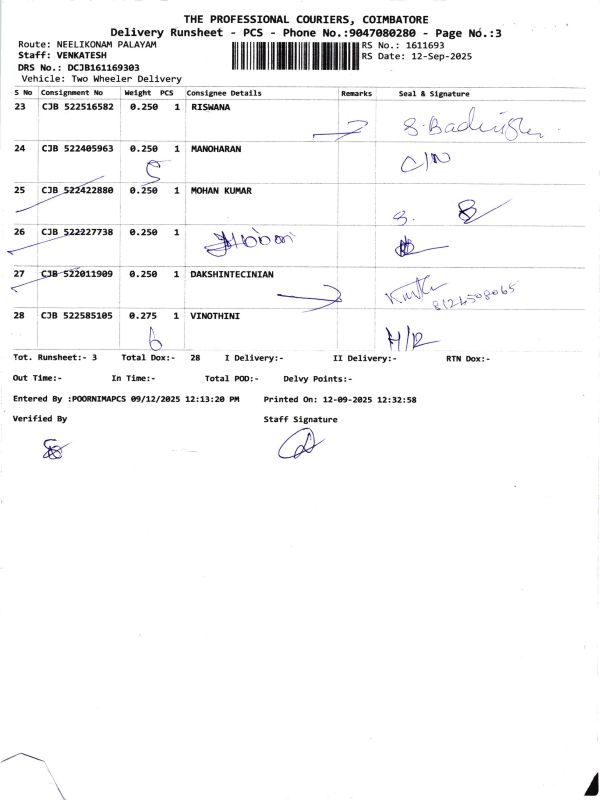 THE PROFESSIONAL COURIERS, COIMBATORE
Delivery Runsheet - PCS - Phone No.:9047080280 - Page No.:3
Route: NEELIKONAM PALAYAM RS No.: 1611693
Staff: VENKATESH RS Date: 12-Sep-2025
DRS No.: DCJB161169303
Vehicle: Two Wheeler Delivery
S No Consignment No Weight PCS Consignee Details Remarks Seal & Signature
23 CJB 522516582 0.250 1 RISWANA
24 CJB 522405963 0.250 1 MANOHARAN
C/N
5
25 CJB 522422880 0.250 1 MOHAN KUMAR
S.
26 CJB 522227738 0.250 1
27 CJB 522011909 0.250 1 DAKSHINTECINIAN
8124508065
28 CJB 522585105 0.275 1 VINOTHINI
6 H/R
Tot. Runsheet:- 3 Total Dox:- 28 I Delivery:- II Delivery:- RTN Dox:-
Out Time:- In Time:- Total POD:- Delvy Points:-
Entered By :POORNIMAPCS 09/12/2025 12:13:20 PM Printed On: 12-09-2025 12:32:58
Verified By Staff Signature